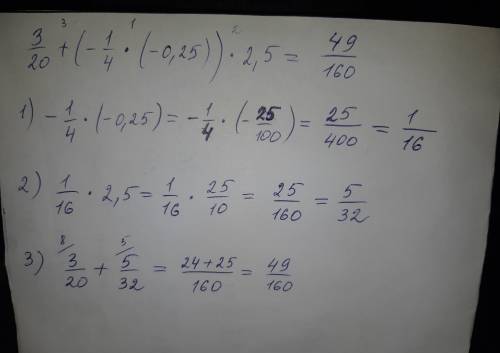 3/20 +³ (-1/4 ·¹ (-0,25)) ·² 2,5 = 49/160
1) -1/4 · (-0,25) = -1/4 · (-25/100) = 25/400 = 1/16
2) 1/16 · 2,5 = 1/16 · 25/10 = 25/160 = 5/32
3) ⁸⁄3/20 + ⁵⁄5/32 = 24+25/160 = 49/160